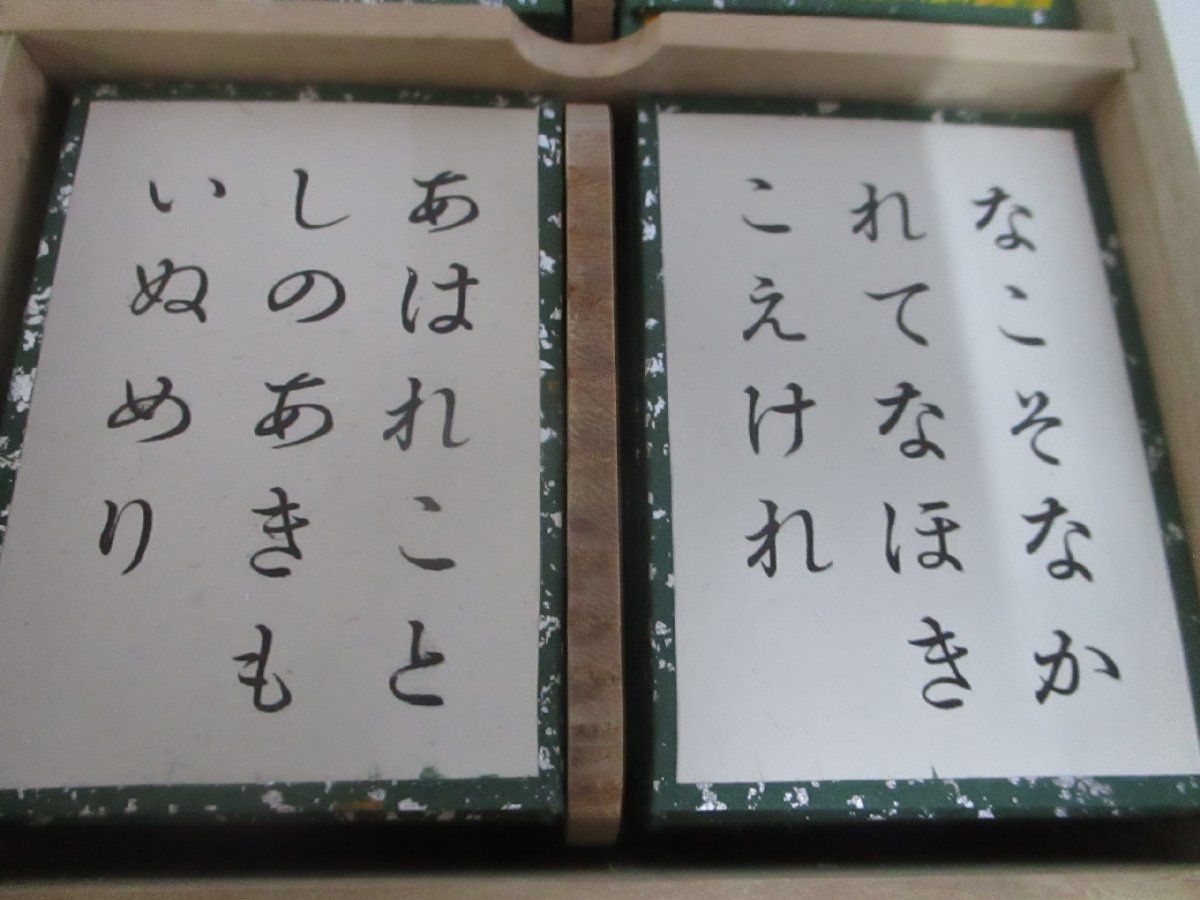 なこそなか
れてなほき
こえけれ
あはれこと
しのあきも
いぬめり